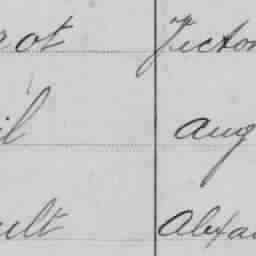 rot Victor
il Aug
ult Alexan